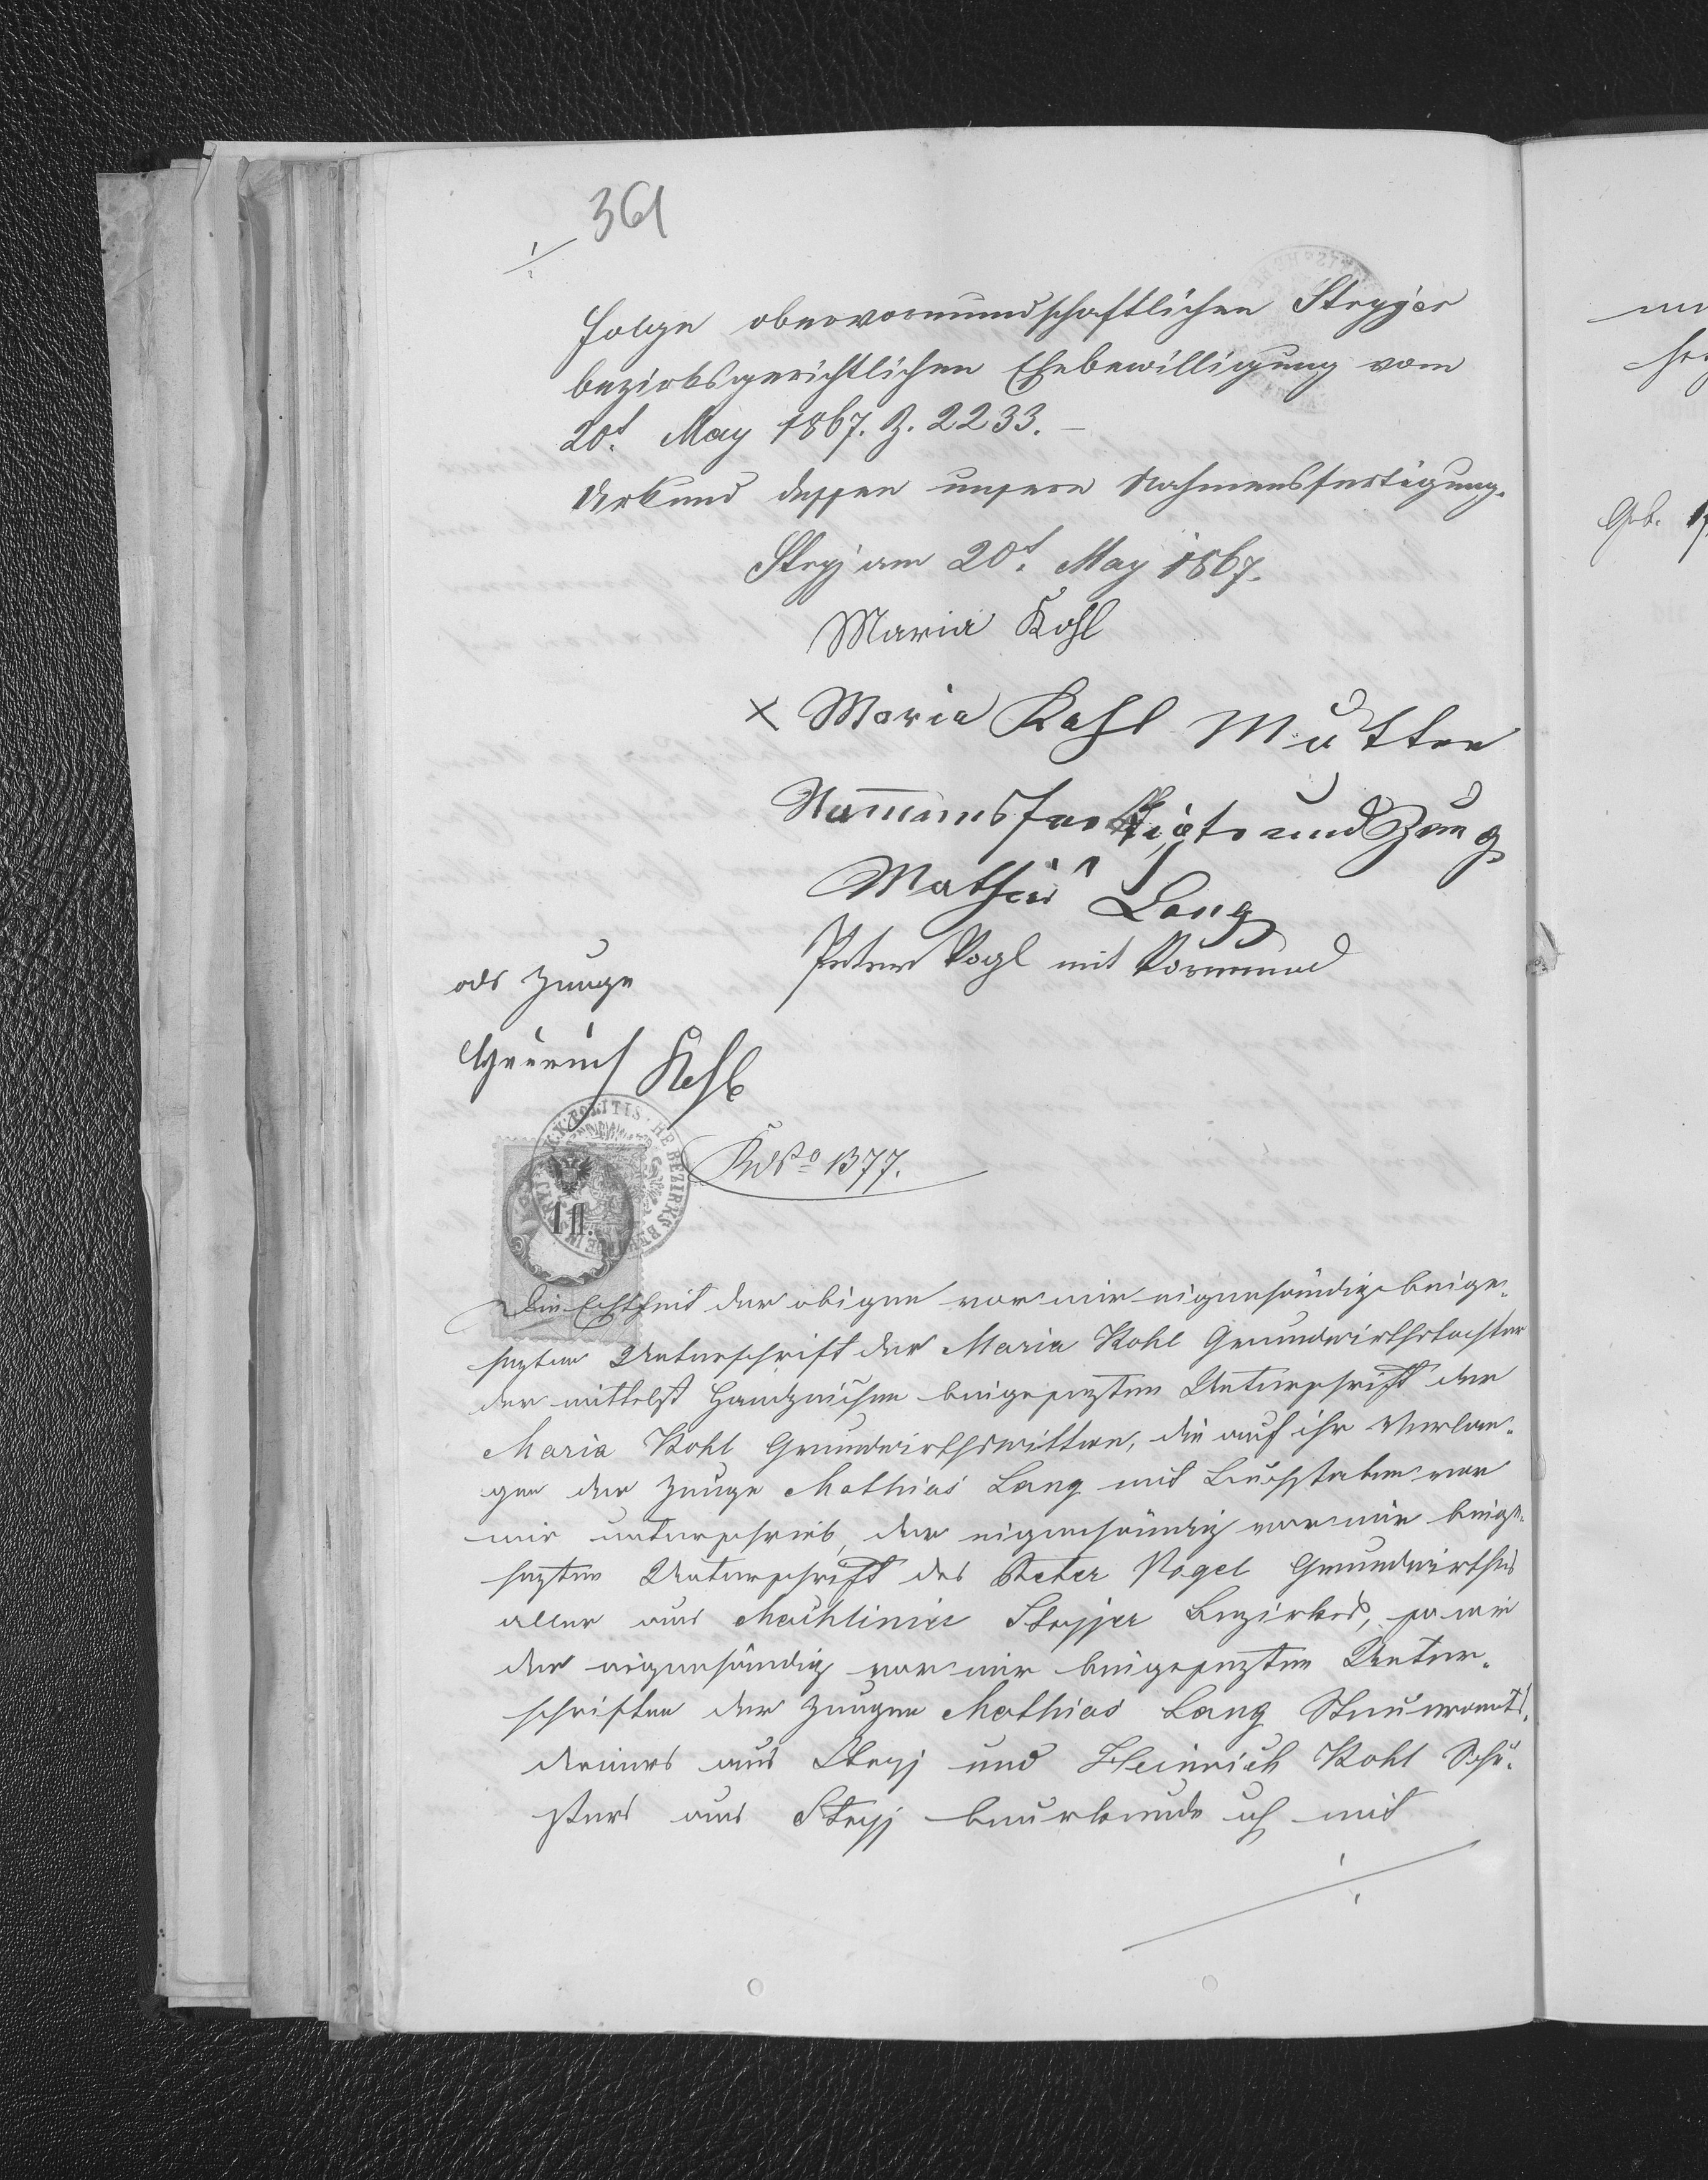 361
folge obervormundschaftlichen Stryjer
bezirksgerichtlichen Ehebewilligung vom
20t. May 1867. Z. 2233. –
Urkund dessen unsere Nahmensfertigung.
Stryj am 20t. May 1867.
Maria Kohl
X Maria Kohl Mutter
Nammensfertigte und Zeug
Mathias Lang
Peter Vogl mit Vormund
als Zeuge
Heinrich Kohl
No 1377.
K.K. POLITISCHE BEZIRKS BEHÖRDE IN STRYJ
1 fl.
Die Echtheit der obigen vor mir eigenhändig beige-
sezten Unterschrift der Maria Kohl Grundwirthstochter
der mittelst Handzeichen beigesezten Unterschrift der
Maria Kohl Grundwirthswittwe, die auf ihr Verlan-
gen der Zeuge Mathias Lang mit Buchstaben vor
mir unterschrieb, der eigenhändig vor mir beige-
sezten Unterschrift des Peter Vogel Grundwirthes
aller aus Machliniec Stryjer Bezirkes, so wie
der eigenhändig vor mir beigesezten Unter-
schriften der Zeugen Mathias Lang Steueramts-
dieners aus Stryj und Heinrich Kohl Schu-
sters aus Stryj beurkunde ich mit
Geb.